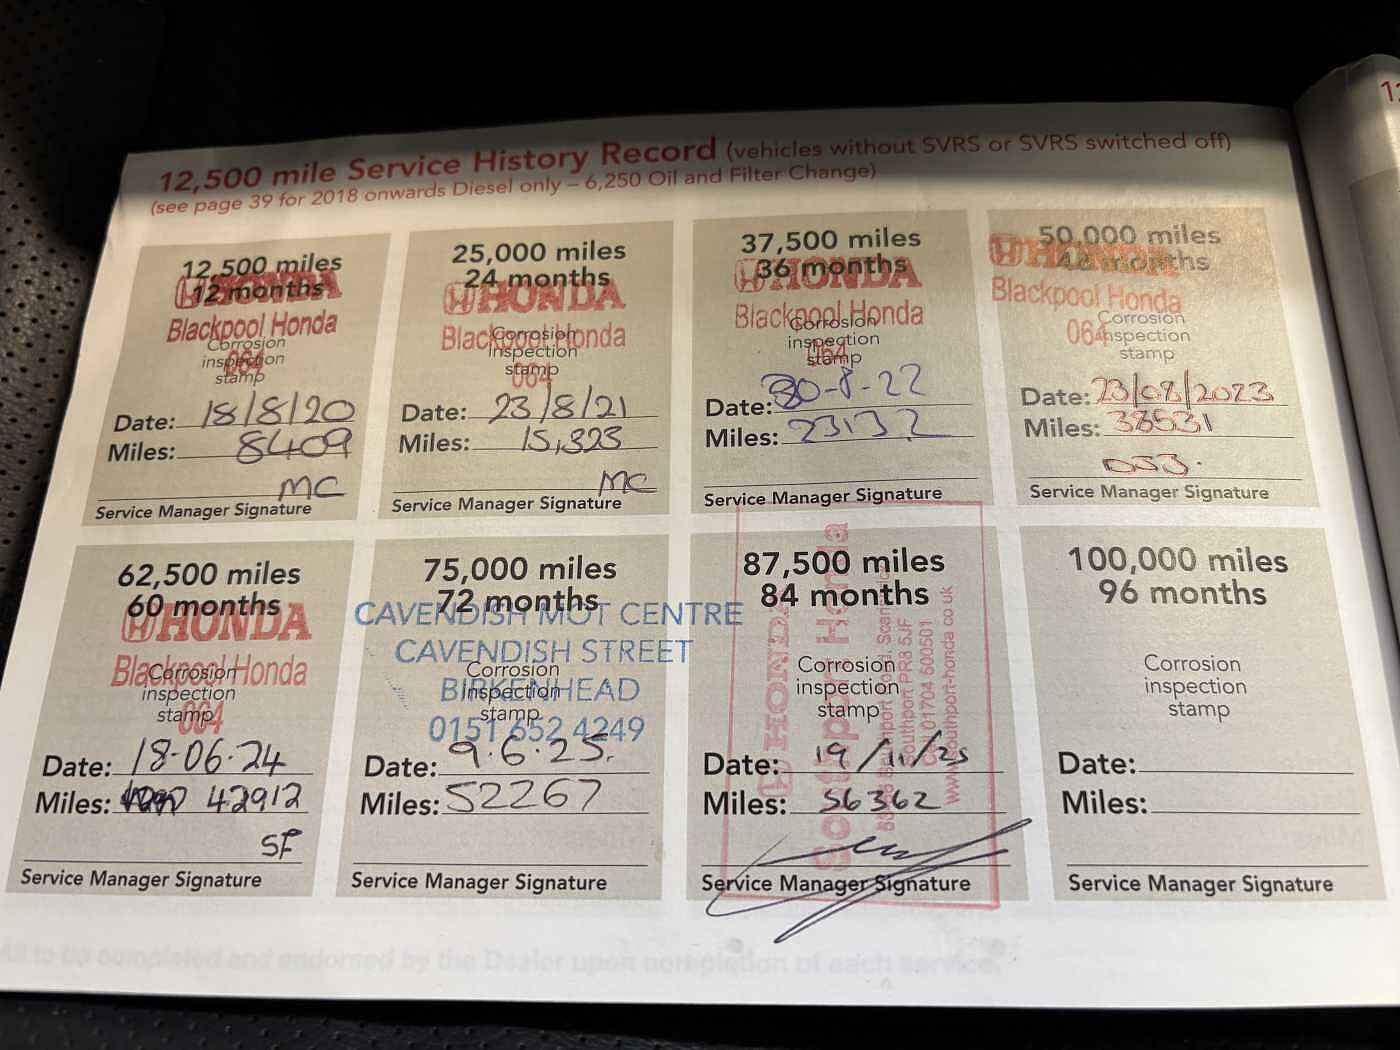 12,500 mile Service History Record (vehicles without SVRS or SVRS switched off)
(see page 39 for 2018 onwards Diesel only – 6,250 Oil and Filter Change)
12,500 miles
12 months
HONDA
Blackpool Honda
Corrosion
inspection
stamp
064
Date: 18/8/20
Miles: 8409
MC
Service Manager Signature
25,000 miles
24 months
HONDA
Blackpool Honda
Corrosion
inspection
stamp
064
Date: 23/8/21
Miles: 15,323
MC
Service Manager Signature
37,500 miles
36 months
HONDA
Blackpool Honda
Corrosion
inspection
stamp
064
Date: 30-8-22
Miles: 23132
Service Manager Signature
50,000 miles
48 months
HONDA
Blackpool Honda
064
Corrosion
inspection
stamp
Date: 23/08/2023
Miles: 38531
Service Manager Signature
62,500 miles
60 months
HONDA
Blackpool Honda
Corrosion
inspection
stamp
064
Date: 18-06-24
Miles: 42912
SF
Service Manager Signature
75,000 miles
72 months
CAVENDISH MOT CENTRE
CAVENDISH STREET
BIRKENHEAD
0151 652 4249
Corrosion
inspection
stamp
Date: 9.6.25.
Miles: 52267
Service Manager Signature
87,500 miles
84 months
Corrosion
inspection
stamp
HONDA
Southport Honda
Southport PR8 5JF
01704 500501
www.southport-honda.co.uk
Date: 19/11/25
Miles: 56362
Service Manager Signature
100,000 miles
96 months
Corrosion
inspection
stamp
Date:
Miles:
Service Manager Signature
All to be completed and endorsed by the Dealer upon completion of each service.